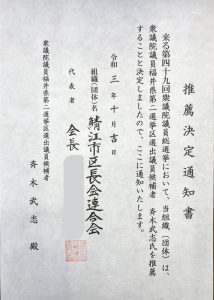 推薦決定通知書
来る第四十九回衆議院議員総選挙において、当組織（団体）は、
衆議院議員福井県第二選挙区選出議員候補者　斉木武志氏を推薦
することと決定しましたので、ここに通知いたします。
令和三年十月吉日
組織（団体）名　鯖江市区長会連合会
代表者　会長
衆議院議員福井県第二選挙区選出議員候補者
斉木武志　殿